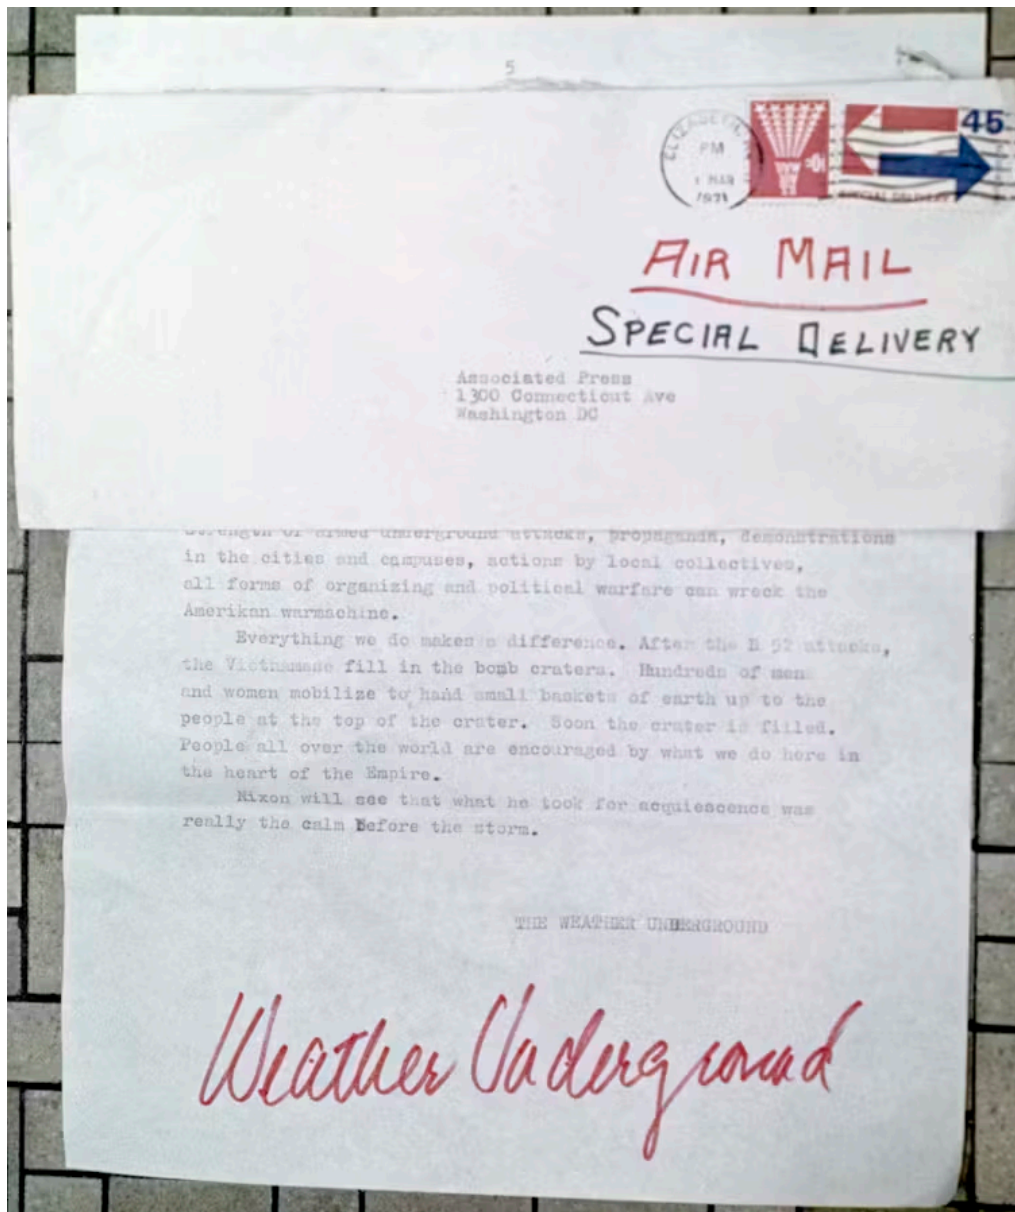 5
ELIZABETH, NJ
PM
1 MAR
1971
45
SPECIAL DELIVERY
AIR MAIL
SPECIAL DELIVERY
Associated Press
1300 Connecticut Ave
Washington DC
strength of armed underground attacks, propaganda, demonstrations
in the cities and campuses, actions by local collectives,
all forms of organizing and political warfare can wreck the
Amerikan warmachine.
Everything we do makes a difference. After the B 52 attacks,
the Vietnamese fill in the bomb craters. Hundreds of men
and women mobilize to hand small baskets of earth up to the
people at the top of the crater. Soon the crater is filled.
People all over the world are encouraged by what we do here in
the heart of the Empire.
Nixon will see that what he took for acquiescence was
really the calm Before the storm.
THE WEATHER UNDERGROUND
Weather Underground